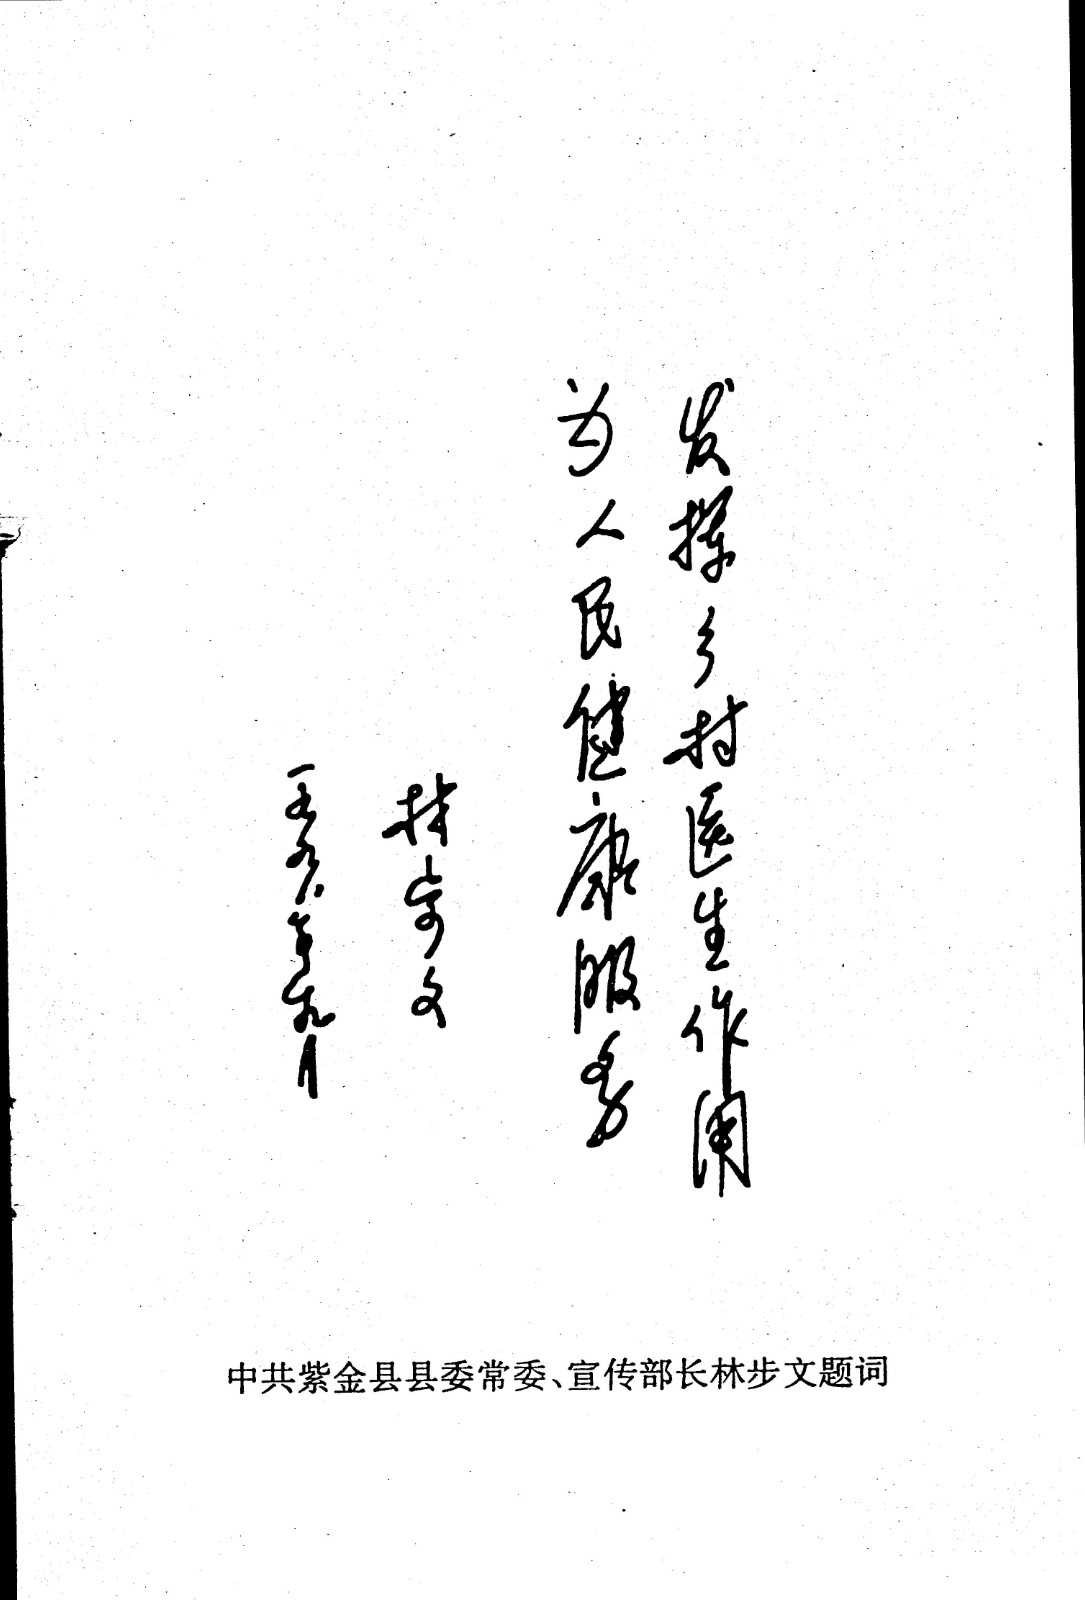 发挥乡村医生作用
为人民健康服务
林步文
一九九八年九月
中共紫金县县委常委、宣传部长林步文题词